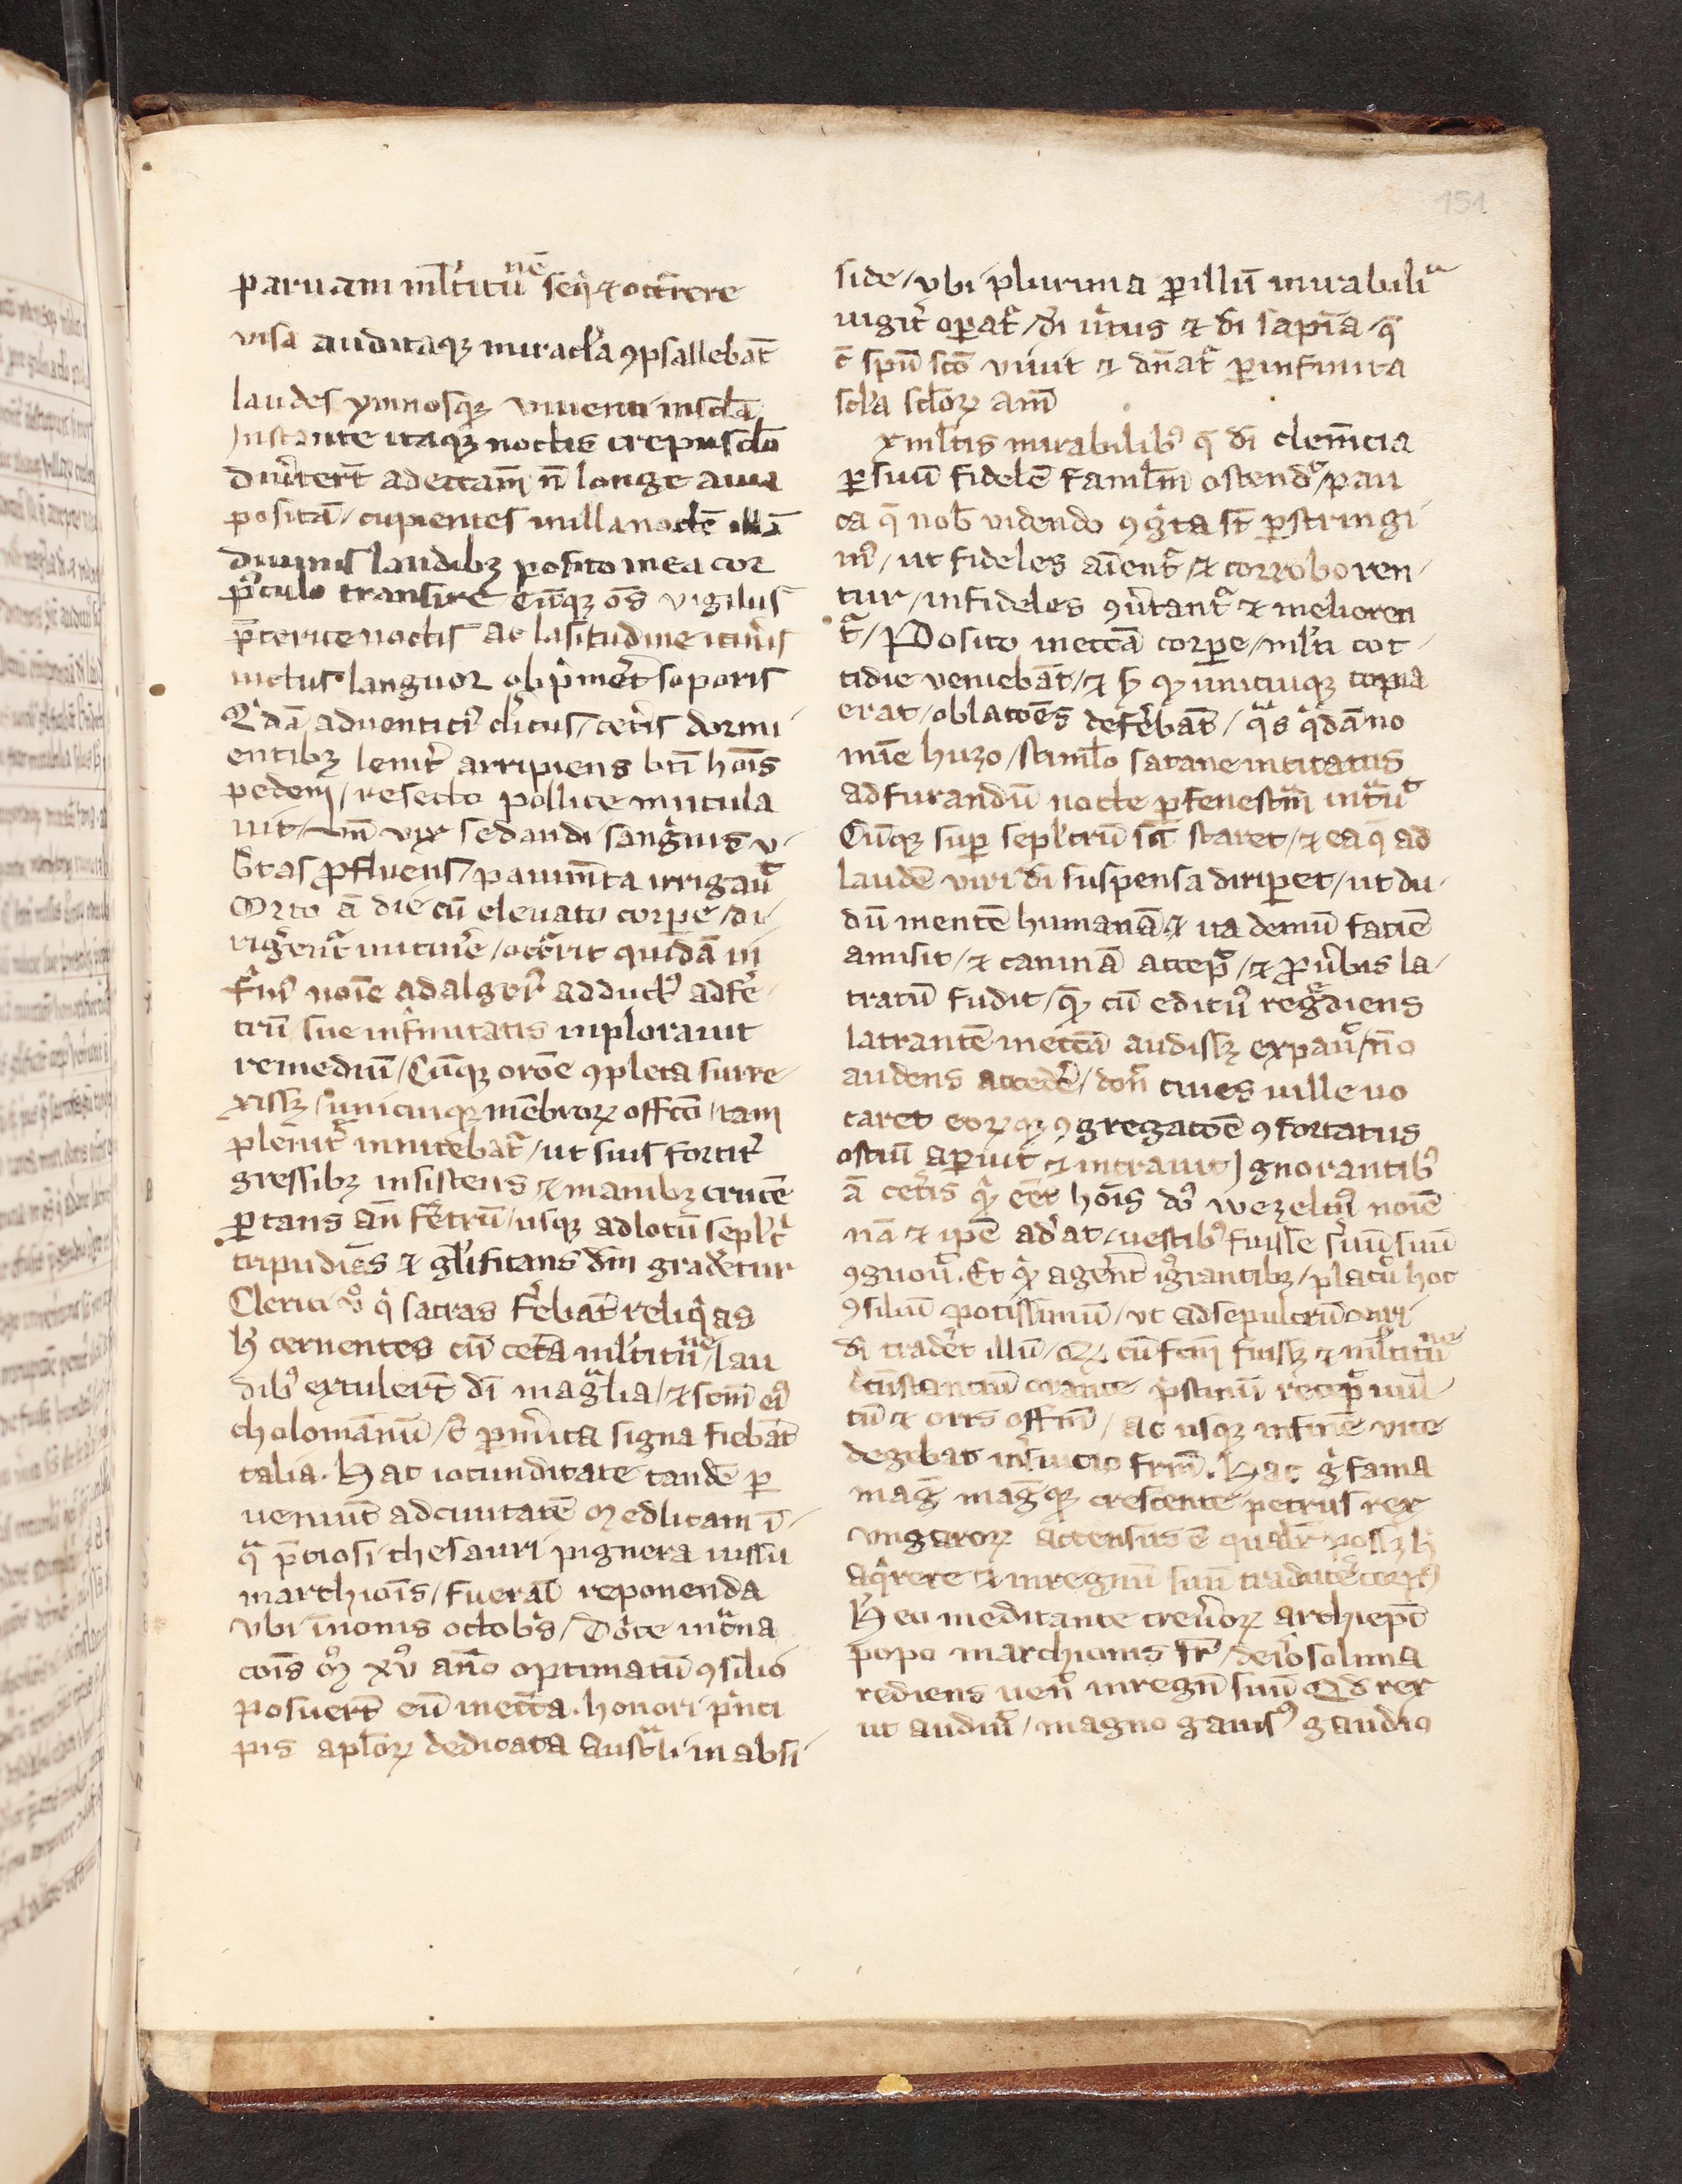 151
paruam ml̄titu᷑nē seq̇ ⁊ occr̄rere
visa auditaqꝫ miracl̓a ꝯpsallebāt
laudes ymnosqꝫ viuenti in scl̄a
Instante itaqꝫ noctis crepusclō
diu̓tert̄ ad eccam̄ n̄ longe a uia
positā / cupientes in illa noctē illā
diuinis laudibꝫ posito in ea cor
pusculo transire Cūqꝫ oēs vigilijs
p̄terite noctis ac lasitudine itin̓is
metus languor obp̓mer̄et soporis
Q̓dā aduentici᷒ cl̓icus / cet̓is dormi
entibꝫ lenit̓ arripiens bt̄i hoīs
pedem / resecto pollice mutula
uit / vn̄ vix sedandi sanguis v
b̓tas ꝓfluens / pauim̄ta irrigau᷑
Orto ā die cū eleuato corpe / di
rigerent᷑ in itin̓e / occr̄rit quidā in
firm᷒ noīe adalger᷒ adduct᷒ ad fe
trū sue infirmitatis inplorauit
remediū / Cūqꝫ orōe ꝯpleta surre
xissꝫ / unicuiqꝫ mēbroꝝ offīco / tam
plenit̓ innitebat᷑ / ut suis fortit̓
gressibꝫ insistens ⁊ manibꝫ crucē
portans an̄ fer̄etrū / usqꝫ ad locū sepl̓c᷑
tripudiās ⁊ gl̓ificans dm̄ graderetur
Clerici v᷒ q̇ sacras fer̓ebāt reliq̇as
h̓ cernentes cū cet̓a ml̄titu᷑ne / lau
dib᷒ extulert̄ dī magnalia / ⁊ scm̄ ei᷒
cholomānū / ꝑ m̓ita signa fiebāt
talia. Hac iocunditate tandē ꝑ
ueniūt ad ciuitatē Medlicam ī
q̇ p̄tiosi thesauri pignera iussu
marchiōis / fuerāt reponenda
Vbi ī nonis octobr̓s / Dōice in᷑na
cōis M᷒ xv᷒ an̄o optimatū ꝯsilio
posuert̄ eū in ecc̄a. honori pn̓ci
pis apl̓oꝝ dedicata australi in absi
side / vbi plurima ꝑ illū mirabilia
iugit̓ operat᷑ / dī v᷑tus ⁊ dī sapīa / q̄
c̄ spū scō viuit ⁊ dn̄at᷑ ꝑ infinita
scl̓a scl̓oꝝ am̄
x ml̓tis mirabilib᷒ q̄ dī clem̄cia
ꝑ suū fidelē faml̄m ostend᷑ / pau
ca q̄ nob̓ videndo ꝯg᷑ta st̄ ꝑstringi
m᷒ / ut fideles aīent᷑ ⁊ corroboren
tur / infideles ꝯu̓tant᷑ ⁊ melioren
t᷑ / Posito in eccā corpe / ml̓ti cot
tidie veniebāt / ⁊ s̓ qꝫ unicuiqꝫ copia
erat / oblacōes defer̓ebāt / q̓s q̓dā no
mīe huzo / stimlo satane incitatus
ad furandū nocte ꝑ fenestrā intrau᷑
Cūqꝫ suꝑ sepl̓crū sc̄i staret / ⁊ ea q̄ ad
laudē viri dī suspensa diriꝑet / ut du
dū mentē humanā ⁊ ita demū faciē
amisit / ⁊ caninā accep᷑ / ⁊ ꝓ v̓bis la
tratū fudit / qꝫ cū editu᷒ reg̓diens
latrantē in eccā audissꝫ expau᷑ / n̄o
audens acceder̄e / don̓ ciues uille uo
caret eorꝫqꝫ ꝯgregacōe ꝯfortatus
ostiū apͥuit ⁊ intrauit Ignorantib᷒
ā cet̓is qꝫ eēt hōis do᷒ wezelin᷒ noīe
nā ⁊ ipē ad̓at / uestib᷒ fuisse s̓uū suū
ꝯgnou᷑. Et qꝫ agerēt ig̓rantibꝫ / placu᷑ hoc
ꝯsiliū potissimū / vt ad sepulcrū
dī trader̓et illū / Qꝫ cū fcm̄ fuissꝫ ⁊ ml̓titu᷑ne
c̓cūstanciū orante p̓stinū recep᷑ uul
tū ⁊ oris offm̄ / ac usqꝫ in finē vite
degebat in s̓uicio frm̄. Hac g̓ fama
mag̓ mag̓qꝫ crescente petrus rex
vngaroꝝ accensus ē qual̓r possꝫ h̓
aq̇rere ⁊ in regnū suū traducer̓e corp᷒
H̓ eo meditante treu̓oꝝ archiep̄c
popo marchionis fr̄ / de ierosolima
rediens uen᷑ in regn̄ suū Qd̓ rex
ut audiu᷑ / magno gauis᷒ gaudio